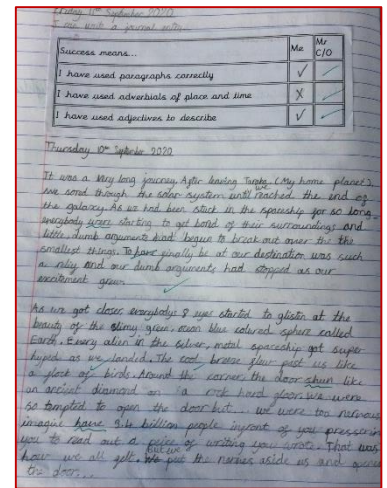 Friday 11th September 2020
I can write a journal entry.
Success means... Me Mr C/O
I have used paragraphs correctly
I have used adverbials of place and time
I have used adjectives to describe
Thursday 10th September 2020
It was a very long journey. After leaving (My home planet),
we sored through the solar system until we reached the end of
the galaxy. As we had been stuck in the spaceship for so long,
everybody were starting to get bord of their surroundings and
little dumb arguments had begun to break out over the the
smallest things. To have finally be at our destination was such
a relief and our dumb arguments had stopped as our
excitement grew.
As we got closer, everybodys 8 eyes started to glisten at the
beauty of the slimy green, ocean blue colored sphere called
Earth. Every alien in the silver, metal spaceship got super
hyped as we landed. The cool breeze flew past us like
a flock of birds. Around the corner, the door shun like
an ancient diamond on a rock hard floor. We were
so tempted to open the door but... we were too nervous
imagine have 3.4 billion people infront of you pressuring
you to read out a peice of writing you wrote. That was
how we all felt. but we put the nerves aside us and opened
the door...